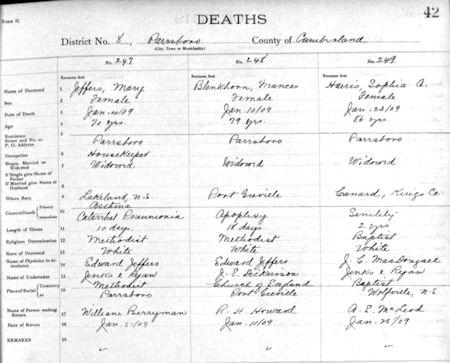 FORM N.
DEATHS
42
District No. 8, Parrsboro County of Cumberland
(City, Town or Municipality)
No. 247 No. 248 No. 249
Surname first Surname first Surname first
Name of Deceased 1 Jeffers, Mary Blenkhorn, Frances Harris, Sophia A.
Sex 2 Female Female Female
Date of Death 3 Jan. /09 Jan. 10/09 Jan. 23/09
Age 4 70 yrs. 79 yrs. 86 yrs.
Residence
Street and No. or
P. O. Address 5 Parrsboro Parrsboro Parrsboro
Occupation 6 Housekeeper
Single, Married or
Widowed 7 Widowd Widowd Widowd
If Single give Name of
Father
If Married give Name of
Husband 8
Where Born 9 Lakeland, N.S. Port Greville Canard, Kings Co.
Cause of Death 10 Asthma
Catarrhal Pneumonia Apoplexy Senility
Length of Illness 11 10 days 18 days 2 yrs
Religious Denomination 12 Methodist Methodist Baptist
Race of Deceased 13 White White White
Name of Physician in attendance 14 Edward Jeffers Edward Jeffers J. C. MacDougall
Name of Undertaker 15 Jenks & Ryan J. E. Dickinson Jenks & Ryan
Place of Burial Cemetery 16 Methodist Church of England Baptist
Parrsboro Port Greville Wolfville, N.S.
Name of Person making 17 William Berryman R. H. Howard A. E. McLeod
Date of Return 18 Jan. 5/09 Jan. 11/09 Jan. 25/09
REMARKS 19